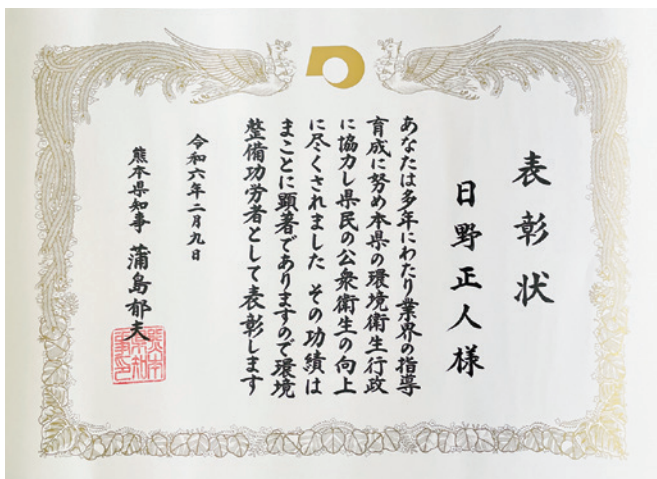 表彰状
日野正人様
あなたは多年にわたり業界の指導
育成に努め本県の環境衛生行政
に協力し県民の公衆衛生の向上
に尽くされました その功績は
まことに顕著でありますので環境
整備功労者として表彰します
令和六年二月九日
熊本県知事 蒲島郁夫